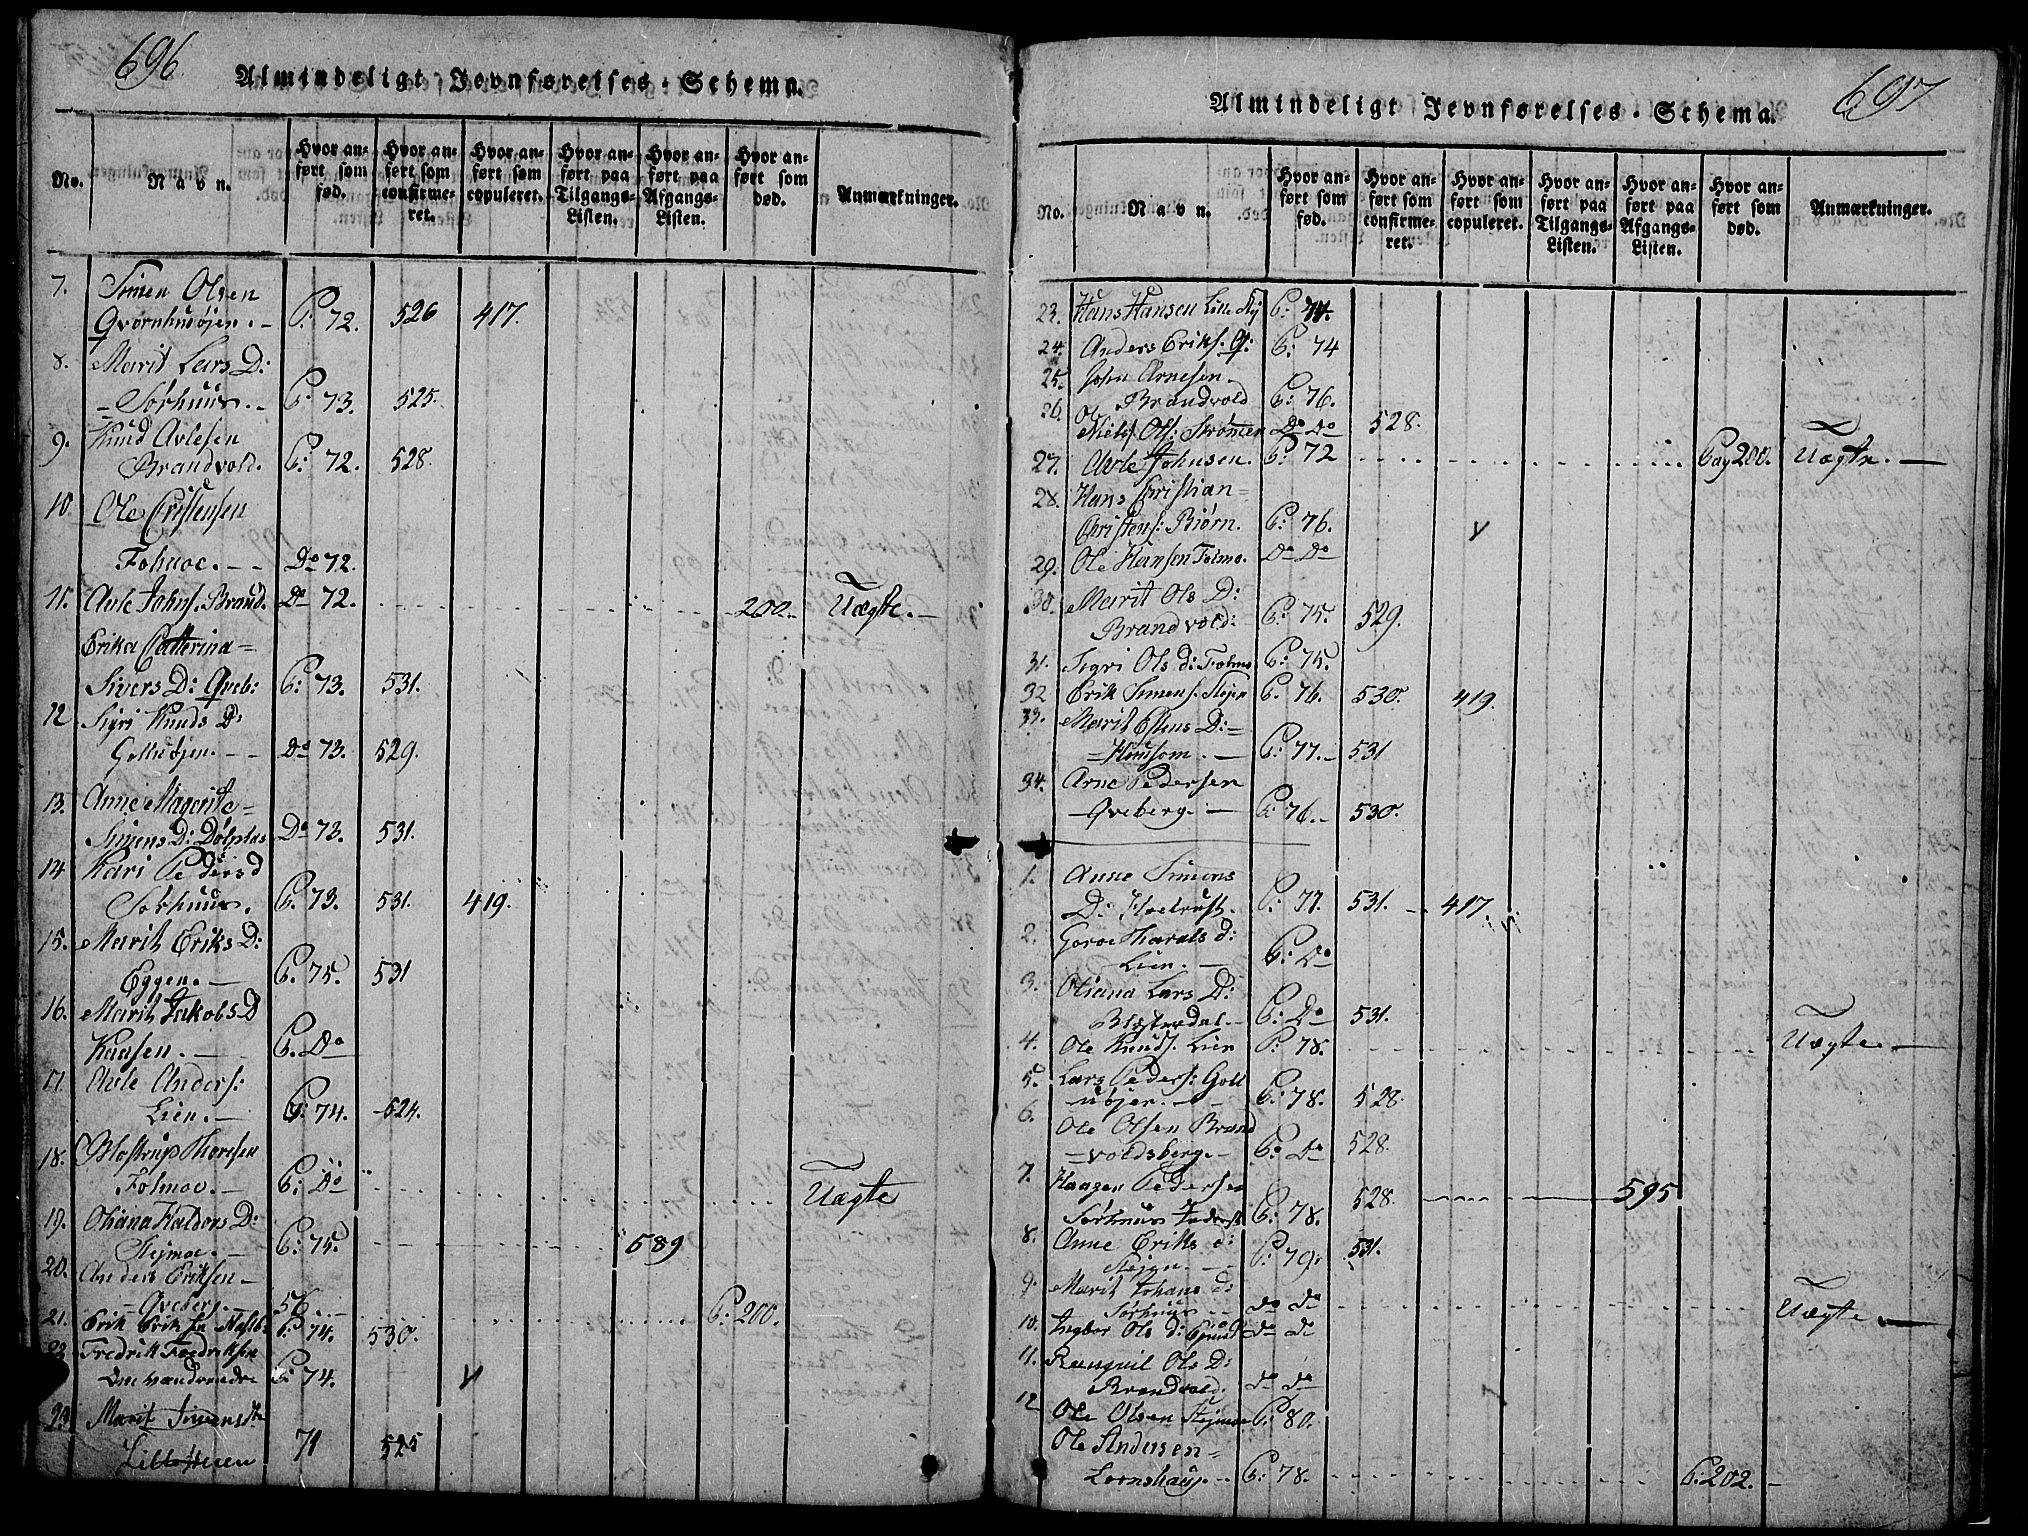 696.
Almindeligt Jevnførelses-Schema.
No. Navn. Hvor anført som fød. Hvor anført som confirmeret. Hvor anført som copuleret. Hvor anført paa Tilgangs-Listen. Hvor anført paa Afgangs-Listen. Hvor anført som død. Anmærkninger.
7. Simen Olsen
Qvernhusøjen. P: 72. 526 417.
8. Marit Lars D:
Sørhuus. P: 73. 525.
9. Knud Avlesen
Brandvold. P: 72. 528.
10 Ole Cristensen
Do 72.
11. Avle Johns. Brand. Do 72. 200. Uægte.
Erika Catterina
Sivers D: Qveb: P: 73. 531.
12 Sigri Knuds D:
Do 73. 529.
13. Anne Magerite
Simens D: Do 73. 531.
14 Kari Peders d
Sørhuus. P. 73. 531. 419.
15. Marit Eriks D:
Eggen. P: 75. 531
16. Marit Jakobs D
Kaasen. P. Do
17 Avle Anders:
Lien. P: 74. 524.
18. Thoresen
Folmoe. P: Do Uægte
19. Oliana Haldors D:
P: 75. 589
20. Anders Eriksen
Qveberg. 56.
21. Erik Eriksen P: 74. 530. P: 200.
22 Fredrik Fredriksen
Omvandrende P: 74.
23 Marit Simens dtr
71 525
697
Almindeligt Jevnførelses-Schema.
No. Navn. Hvor anført som fød. Hvor anført som confirmeret. Hvor anført som copuleret. Hvor anført paa Tilgangs-Listen. Hvor anført paa Afgangs-Listen. Hvor anført som død. Anmærkninger.
23. Hans Hansen Lille P: 74.
24. Anders Eriks. Q: P: 74
25. John Arnesen
Brandvold P: 76.
26. Ols: Strømmen Do Do 528.
27. Avle Johnsen. P: 72 Pag 200. Uægte.
28. Hans Christian
Christens: Biørn. P: 76.
29. Ole Hansen Folmo. Do Do
30. Marit Ols D:
Brandvold: P: 75. 529.
31. Sigri Ols d: Folmo P: 75.
32 Erik Simens. P: 76. 530. 419.
33. Marit Estens D:
P: 77. 531
34. Arne Pedersen
Qveberg. P: 76. 530.
1. Anne Simens
D: P: 77. 531. 417.
2. Goroe Haralds d:
Lien. P: Do
3. Oliana Lars D:
P: Do 531.
4. Ole Knuds. Lien P: 78. Uægte
5. Lars Peders: Goll
uøjen. P: 78. 528.
6. Ole Olsen Brand
voldsberg. P: Do 528.
7. Haagen Pedersen
Sørhuus P: 78. 528. 595
8. Anne Eriks d:
P: 79. 531.
9. Marit Johans d:
Sørhuus Do Do Uægte
10. Ingbor Ols d: Do Do
11. Ranguil Ols D:
Brandvold. Do Do
12 Ole Olsen P: 80.
Ole Andersen
P: 78. P: 202.